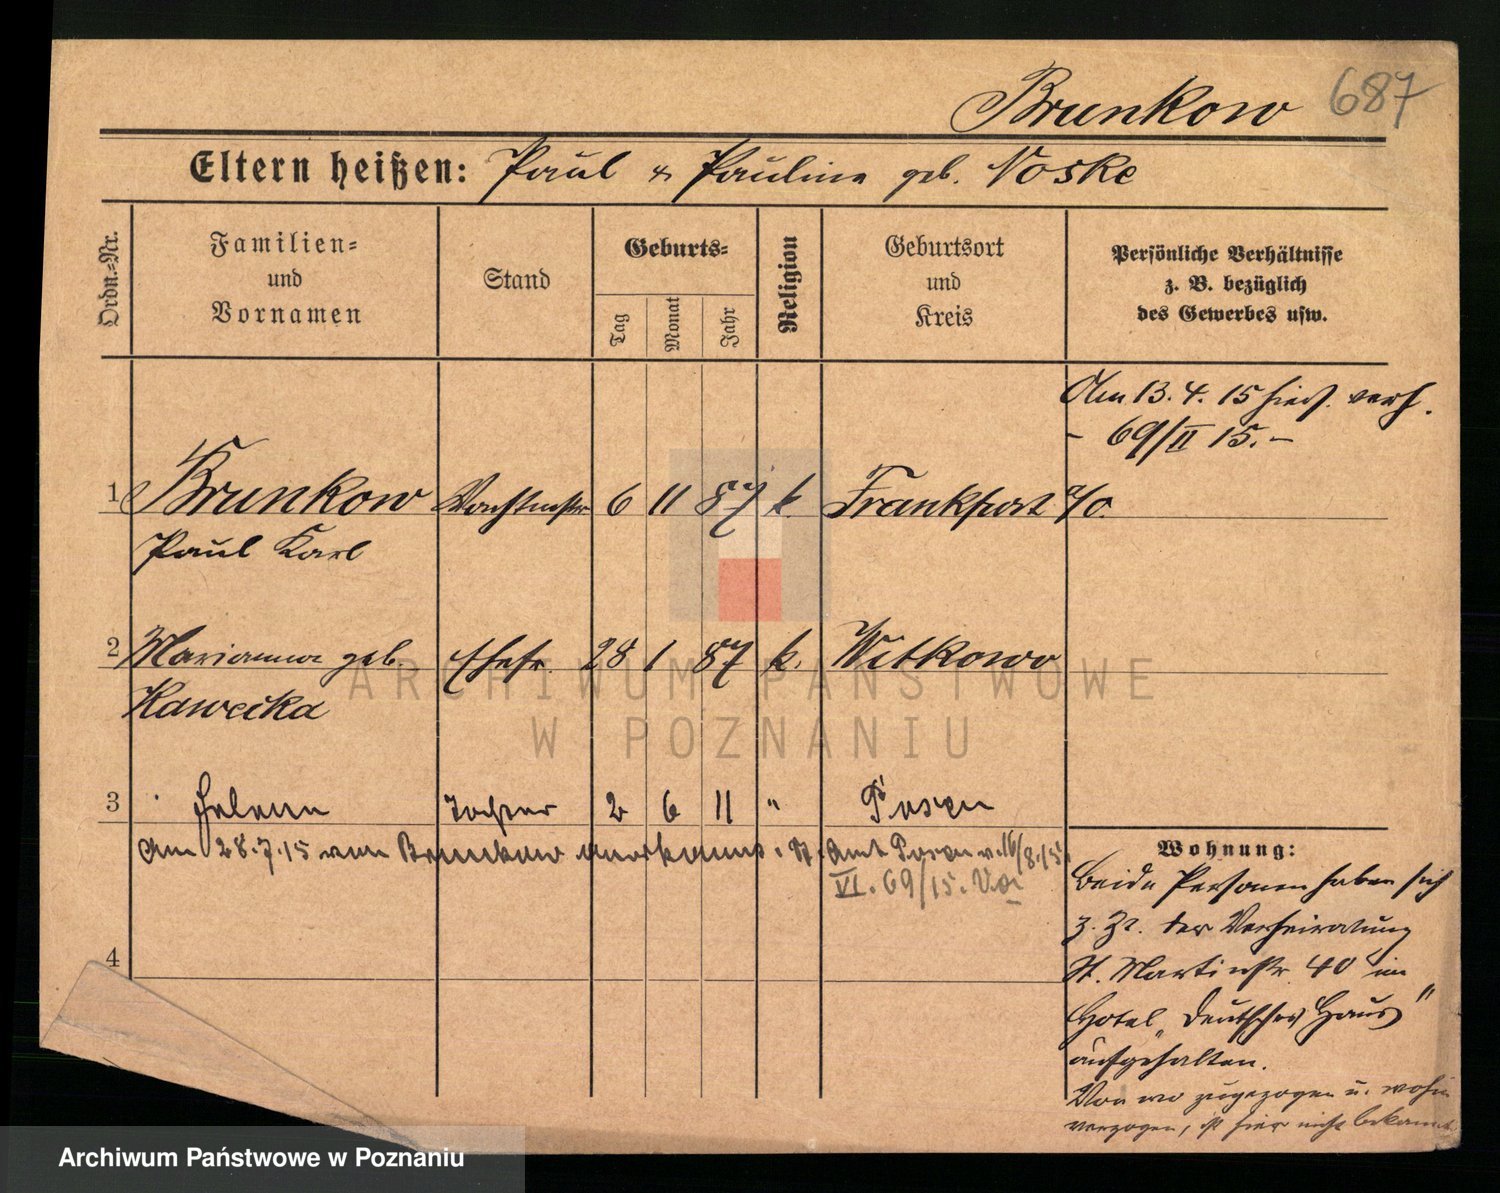 Brunkow 687
Eltern heißen: Paul & Pauline geb. Noske
Ordn.=Nr.
Familien=
und
Vornamen
Stand
Geburts=
Tag
Monat
Jahr
Religion
Geburtsort
und
Kreis
Persönliche Verhältnisse
z. B. bezüglich
des Gewerbes usw.
Am 13. 4. 15 hier verh.
- 69/II 15. -
1 Brunkow Wachtmstr 6 11 87 k. Frankfurt a/O.
Paul Karl
2 Marianna geb. Ehefr. 28 1 87 k. Witkowo
Kawecka
3 Helena Tochter 2 6 11 " Posen
Am 28.7.15 von Brunkow anerkannt. St. Amt Posen v. 16/8.15.
VI. 69/15.
4
Wohnung:
Beide Personen haben sich
z. Zt. der Verheiratung
St. Martinstr 40 im
Hotel „Deutsches Haus"
aufgehalten.
Von wo zugezogen u. wohin
verzogen, ist hier nicht bekannt.
ARCHIWUM PAŃSTWOWE
W POZNANIU
Archiwum Państwowe w Poznaniu